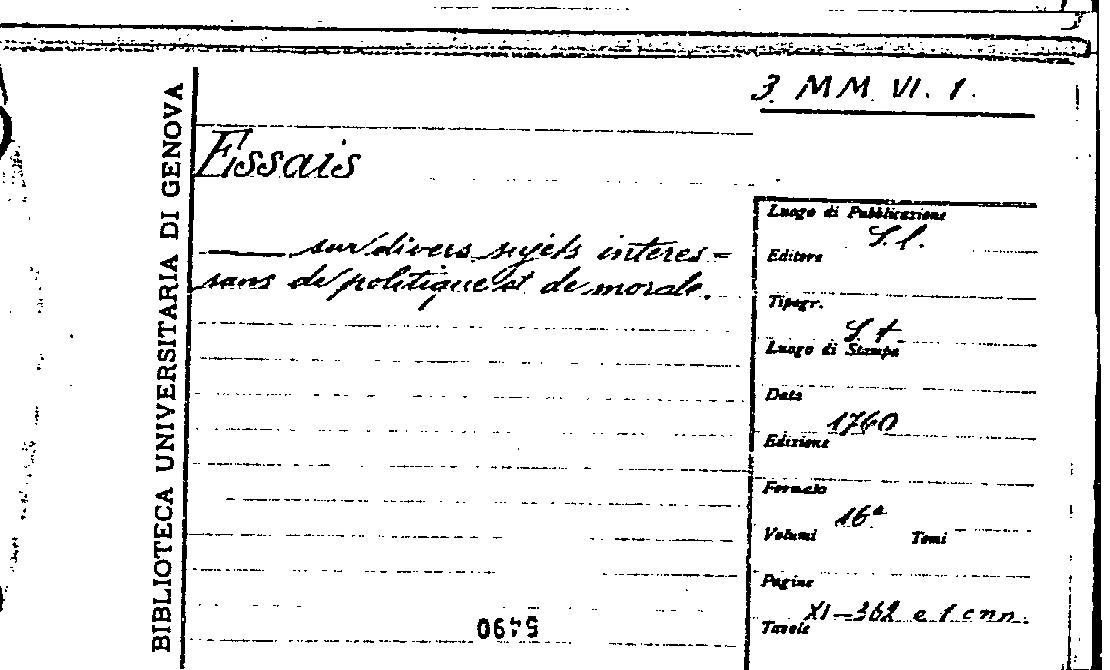 BIBLIOTECA UNIVERSITARIA DI GENOVA
3. MM. VI. 1.
Essais
——— sur divers sujets interes=
sans de politique et de morale.
Luogo di Pubblicazione
S. l.
Editore
Tipogr.
S. t.
Luogo di Stampa
Data
1760
Edizione
Formato
16°
Volumi Tomi
Pagine
XI-362 e 1 c nn.
Tavole